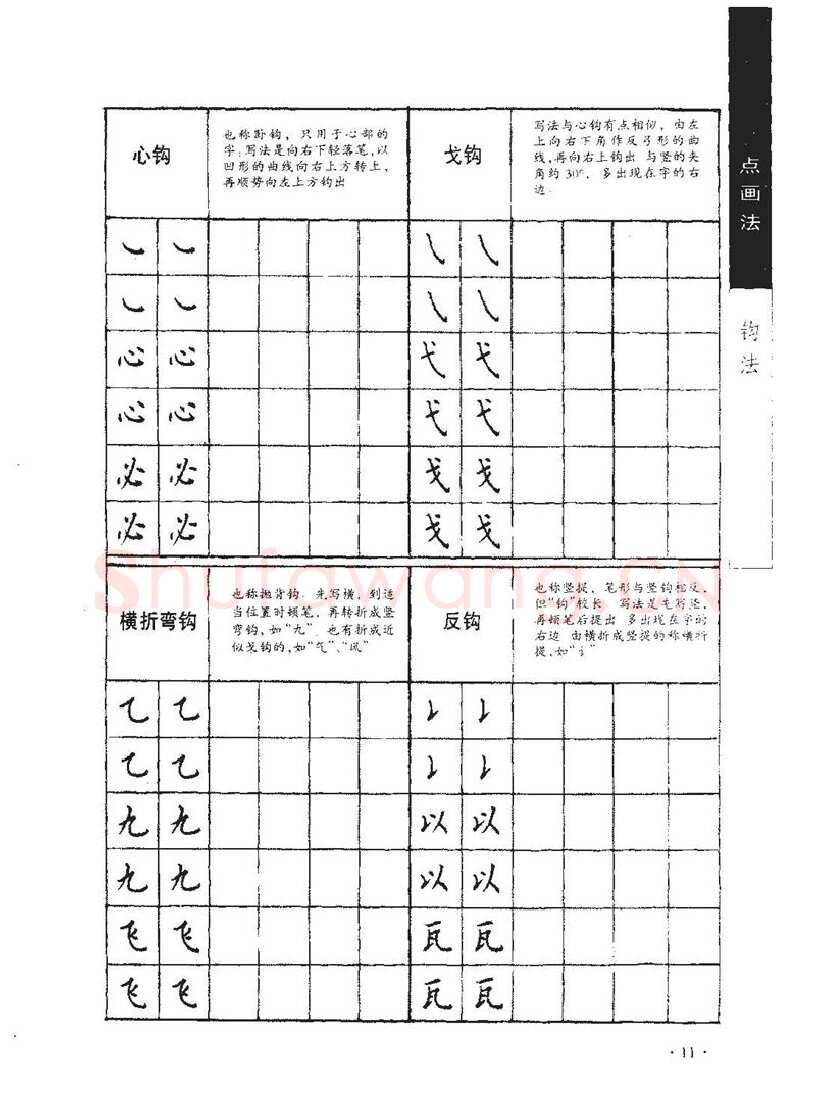 点画法
钩法
心钩
也称卧钩，只用于心部的
字，写法是向右下轻落笔，以
凹形的曲线向右上方转上，
再顺势向左上方钩出
㇃ ㇃
㇃ ㇃
心 心
心 心
必 必
必 必
戈钩
写法与心钩有点相似，由左
上向右下角作反弓形的曲
线，再向右上钩出 与竖的夹
角约30°，多出现在字的右
边.
㇂ ㇂
㇂ ㇂
弋 弋
弋 弋
戈 戈
戈 戈
横折弯钩
也称抛背钩 先写横，到适
当位置时顿笔，再转折成竖
弯钩，如“九” 也有折成近
似戈钩的，如“气”、“风”
⺄ ⺄
⺄ ⺄
九 九
九 九
飞 飞
飞 飞
反钩
也称竖提，笔形与竖钩相反，
但“钩”较长 写法是先写竖，
再顿笔后提出 多出现在字的
右边 由横折成竖提的称横折
提，如“讠”
𠄌 𠄌
𠄌 𠄌
以 以
以 以
瓦 瓦
瓦 瓦
Shufawang.CN
·11·